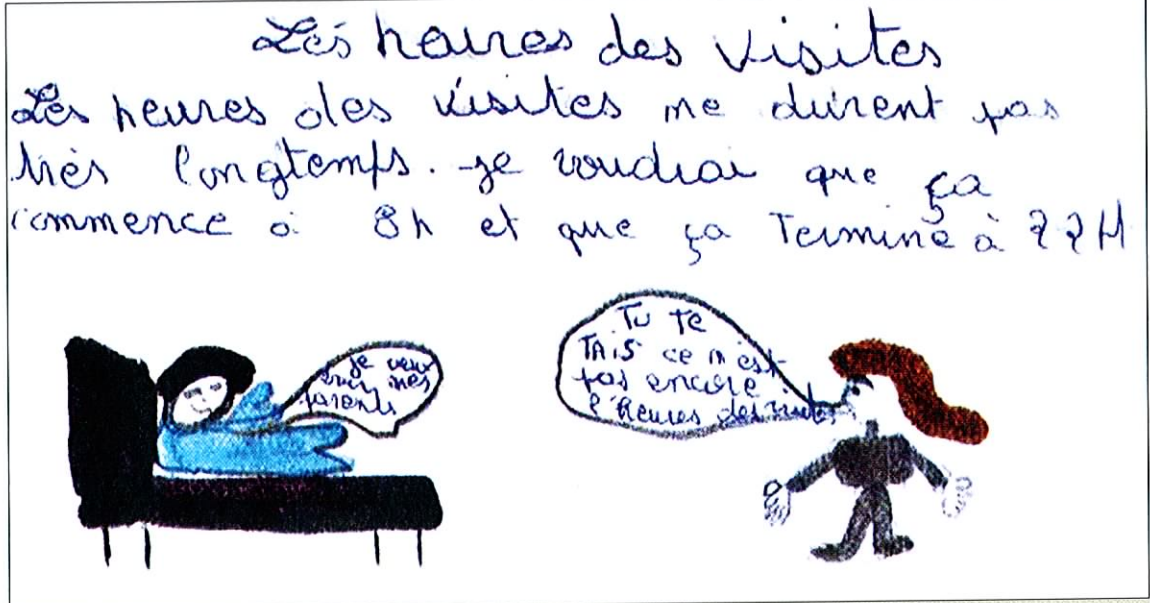 Les haires des visites
Les heures des visites ne durent pas
très longtemps. je voudrai que ça
commence à 8h et que ça Termine à 22H
je veux
voir mes
parents
Tu te
TAiS ce n'est
pas encore
l'heures des